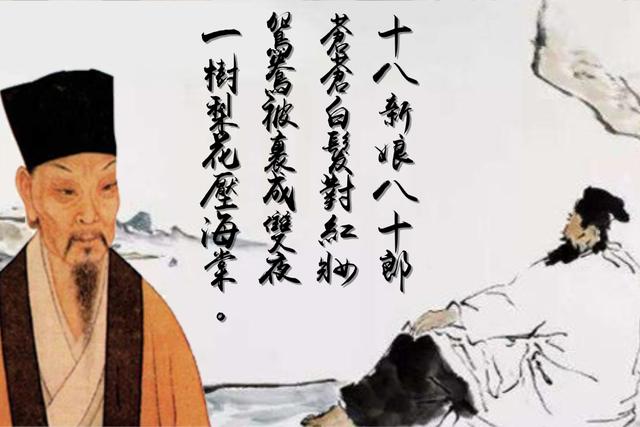 十八新娘八十郎
蒼蒼白髮對紅妝
鴛鴦被裏成雙夜
一樹梨花壓海棠。